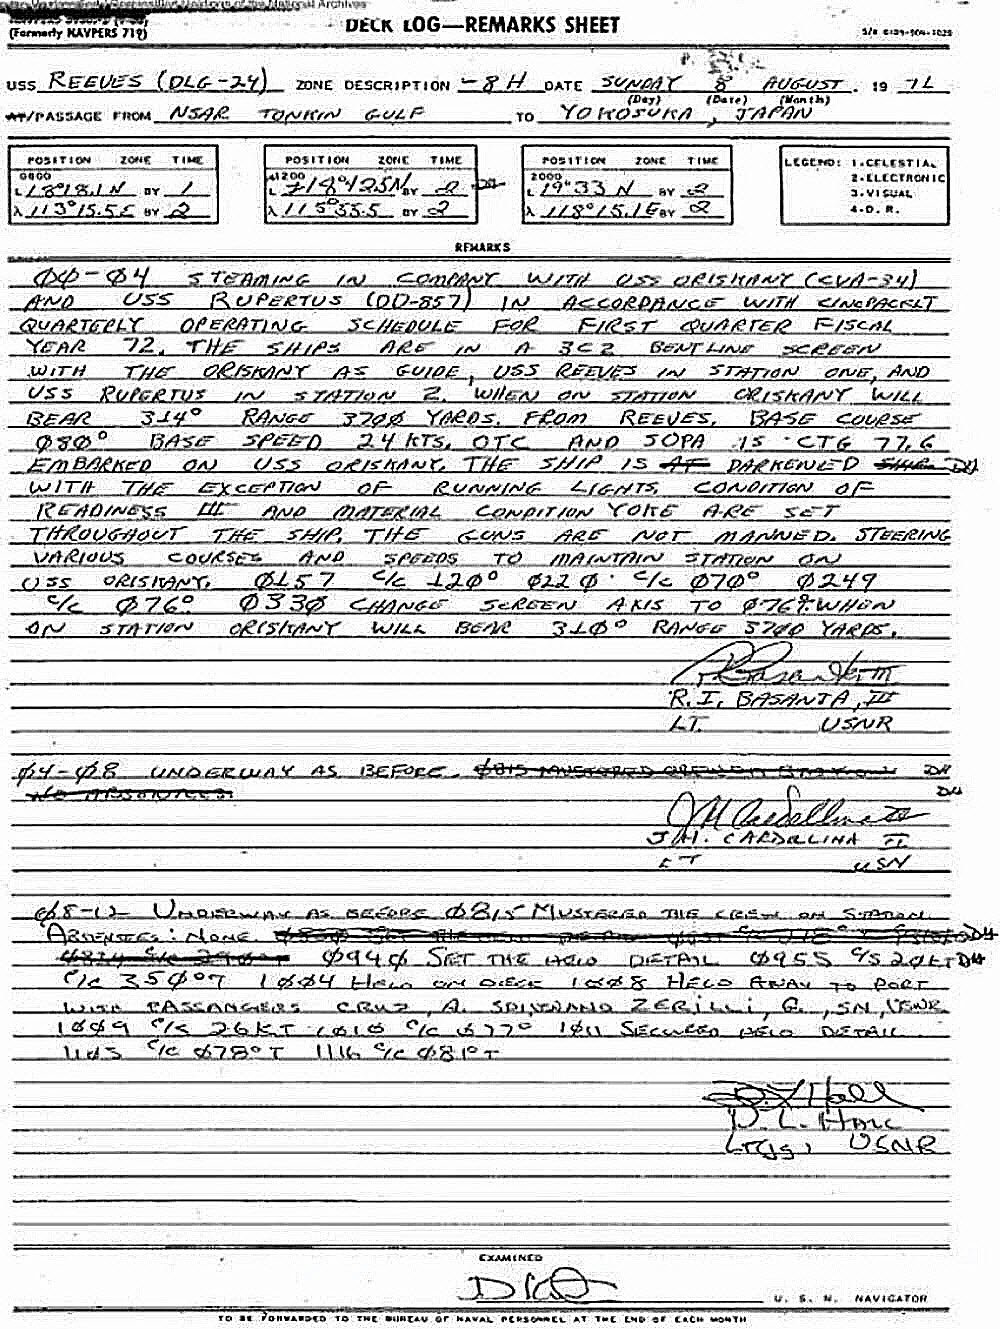 National Archives
(Formerly NAVPERS 719)
DECK LOG—REMARKS SHEET
USS REEVES (DLG-24) ZONE DESCRIPTION -8H DATE SUNDAY 8 AUGUST. 19 71
(Day) (Date) (Month)
AT/PASSAGE FROM NSAR TONKIN GULF TO YOKOSUKA, JAPAN
POSITION ZONE TIME
0800
L 18°18.1N BY 1
λ 113°15.5E BY 2
POSITION ZONE TIME
1200
L 18°42.5N BY 2 DH
λ 115°35.5 BY 2
POSITION ZONE TIME
2000
L 19°33 N BY 2
λ 118°15.1E BY 2
LEGEND: 1-CELESTIAL
2-ELECTRONIC
3-VISUAL
4-D. R.
REMARKS
00-04 STEAMING IN COMPANY WITH USS ORISKANY (CVA-34)
AND USS RUPERTUS (DD-857) IN ACCORDANCE WITH CINCPACFLT
QUARTERLY OPERATING SCHEDULE FOR FIRST QUARTER FISCAL
YEAR 72. THE SHIPS ARE IN A 3C2 BENTLINE SCREEN
WITH THE ORISKANY AS GUIDE, USS REEVES IN STATION ONE, AND
USS RUPERTUS IN STATION 2. WHEN ON STATION ORISKANY WILL
BEAR 314° RANGE 3700 YARDS. FROM REEVES. BASE COURSE
080° BASE SPEED 24 KTS. OTC AND SOPA IS CTG 77.6
EMBARKED ON USS ORISKANY. THE SHIP IS AT DARKENED SHIP DH
WITH THE EXCEPTION OF RUNNING LIGHTS. CONDITION OF
READINESS III AND MATERIAL CONDITION YOKE ARE SET
THROUGHOUT THE SHIP. THE GUNS ARE NOT MANNED. STEERING
VARIOUS COURSES AND SPEEDS TO MAINTAIN STATION ON
USS ORISKANY. 0157 C/C 120° 0220 C/C 070° 0249
C/C 076° 0330 CHANGE SCREEN AXIS TO 076°. WHEN
ON STATION ORISKANY WILL BEAR 310° RANGE 3700 YARDS.
R. I. BASANTA, III
LT. USNR
04-08 UNDERWAY AS BEFORE. 0815 MUSTERED CREW ON STATION DH
NO ABSENTEES. DH
J.H. CARDELLINA II
LT USN
08-12 UNDERWAY AS BEFORE 0815 MUSTERED THE CREW ON STATION
ABSENTEES: NONE. DH
0940 SET THE HELO DETAIL 0955 C/S 20KT DH
C/C 350°T 1004 HELO ON DECK 1008 HELO AWAY TO PORT
WITH PASSANGERS CRUZ, A. AND ZERILLI, G., SN, USNR
1009 C/S 26KT 1010 C/C 077° 1011 SECURED HELO DETAIL
1103 C/C 078°T 1116 C/C 081°T
D. L. HALL
LT(jg), USNR
EXAMINED
U. S. N. NAVIGATOR
TO BE FORWARDED TO THE BUREAU OF NAVAL PERSONNEL AT THE END OF EACH MONTH